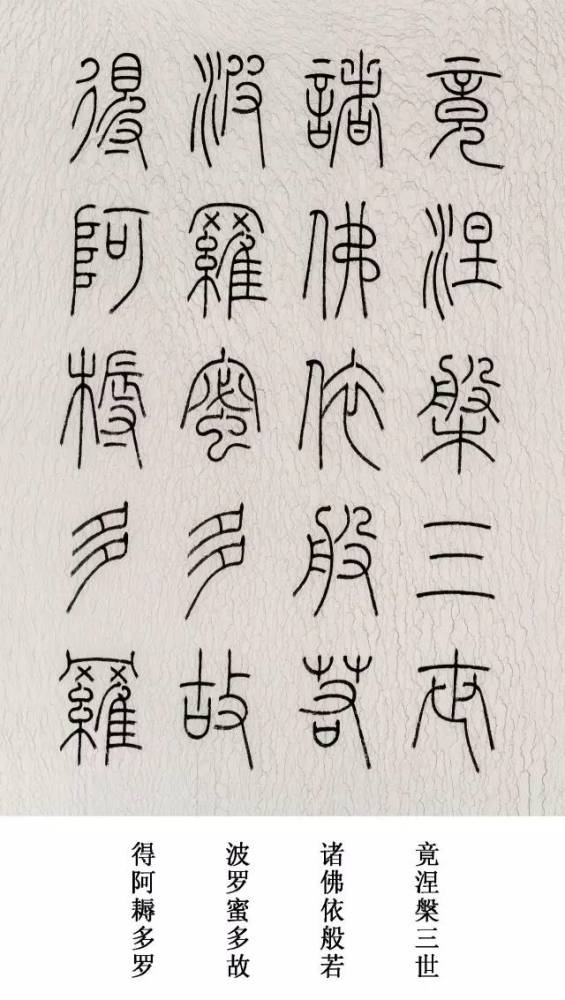 竟涅槃三世
諸佛依般若
波羅蜜多故
得阿耨多羅
竟涅槃三世
诸佛依般若
波罗蜜多故
得阿耨多罗